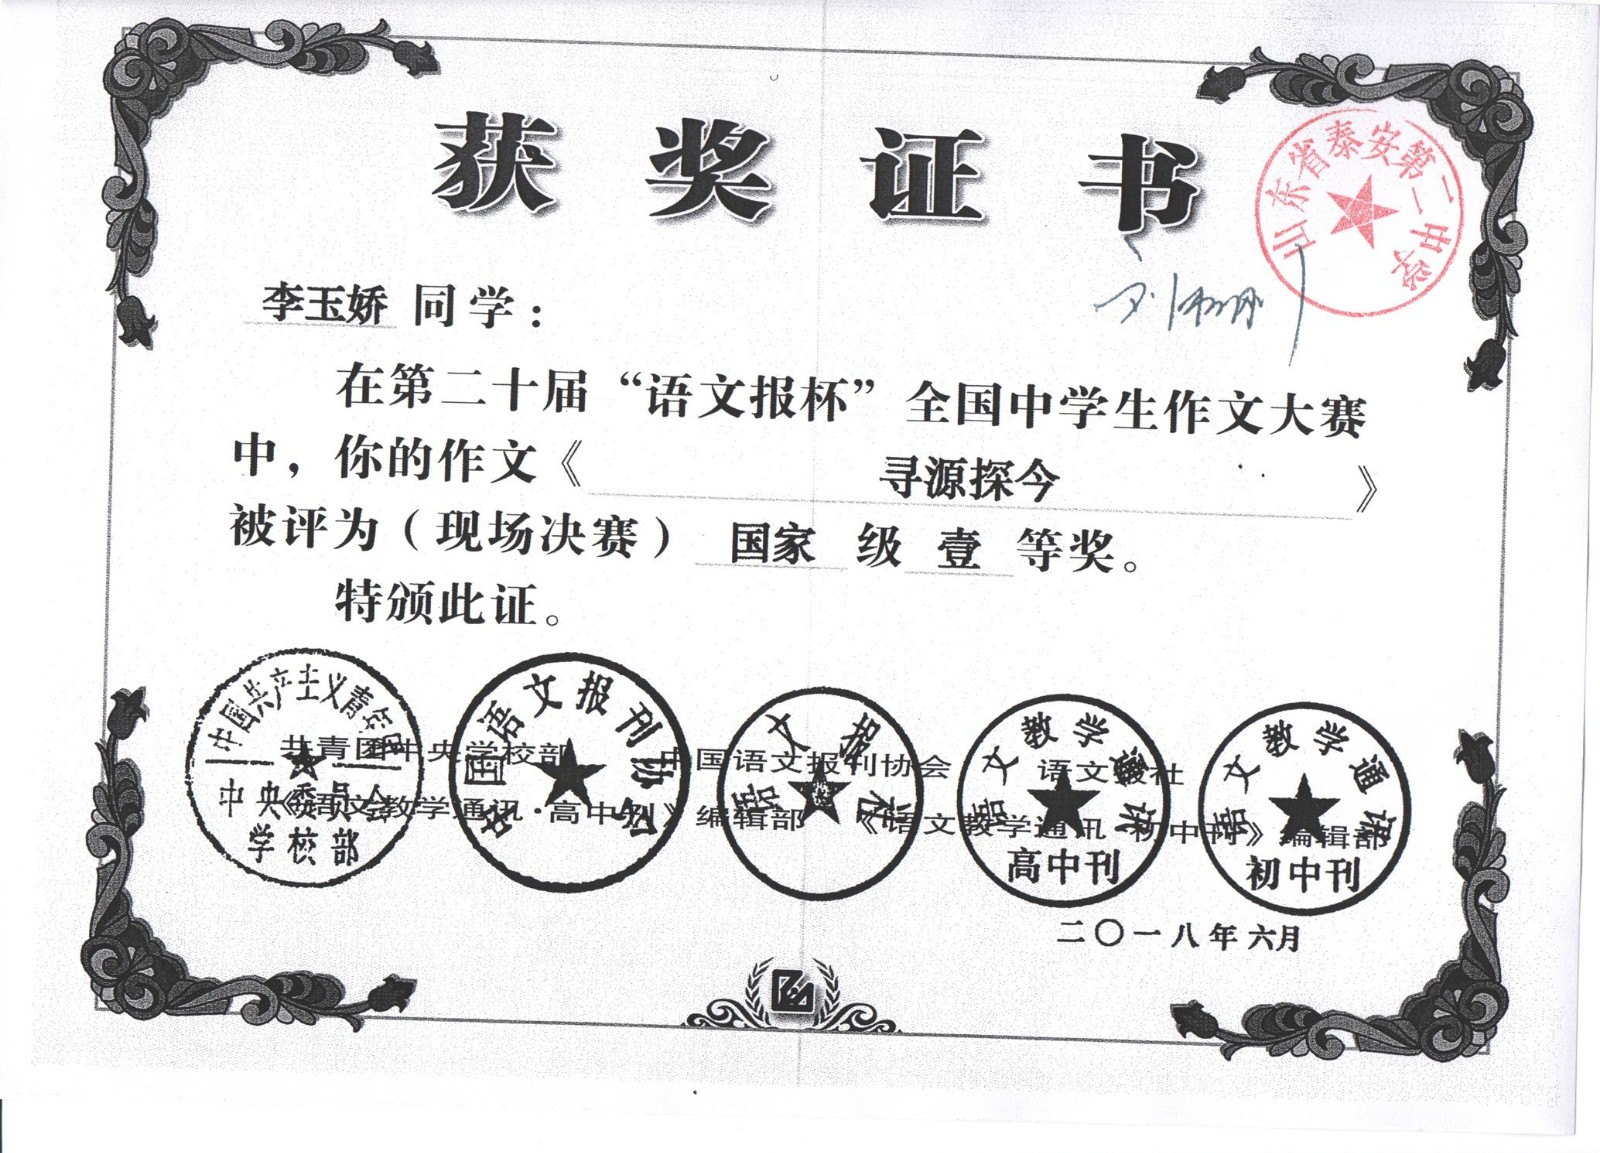 获奖证书
山东省泰安第二中学
李玉娇 同学：
在第二十届“语文报杯”全国中学生作文大赛
中，你的作文《 寻源探今 》
被评为（现场决赛） 国家 级 壹 等奖。
特颁此证。
共青团中央学校部 中国语文报刊协会 语文报社
《语文教学通讯·高中刊》编辑部 《语文教学通讯·初中刊》编辑部
中国共产主义青年团
中央委员会
学校部
中国语文报刊协会
语文报社
语文教学通讯
高中刊
语文教学通讯
初中刊
二〇一八年 六月